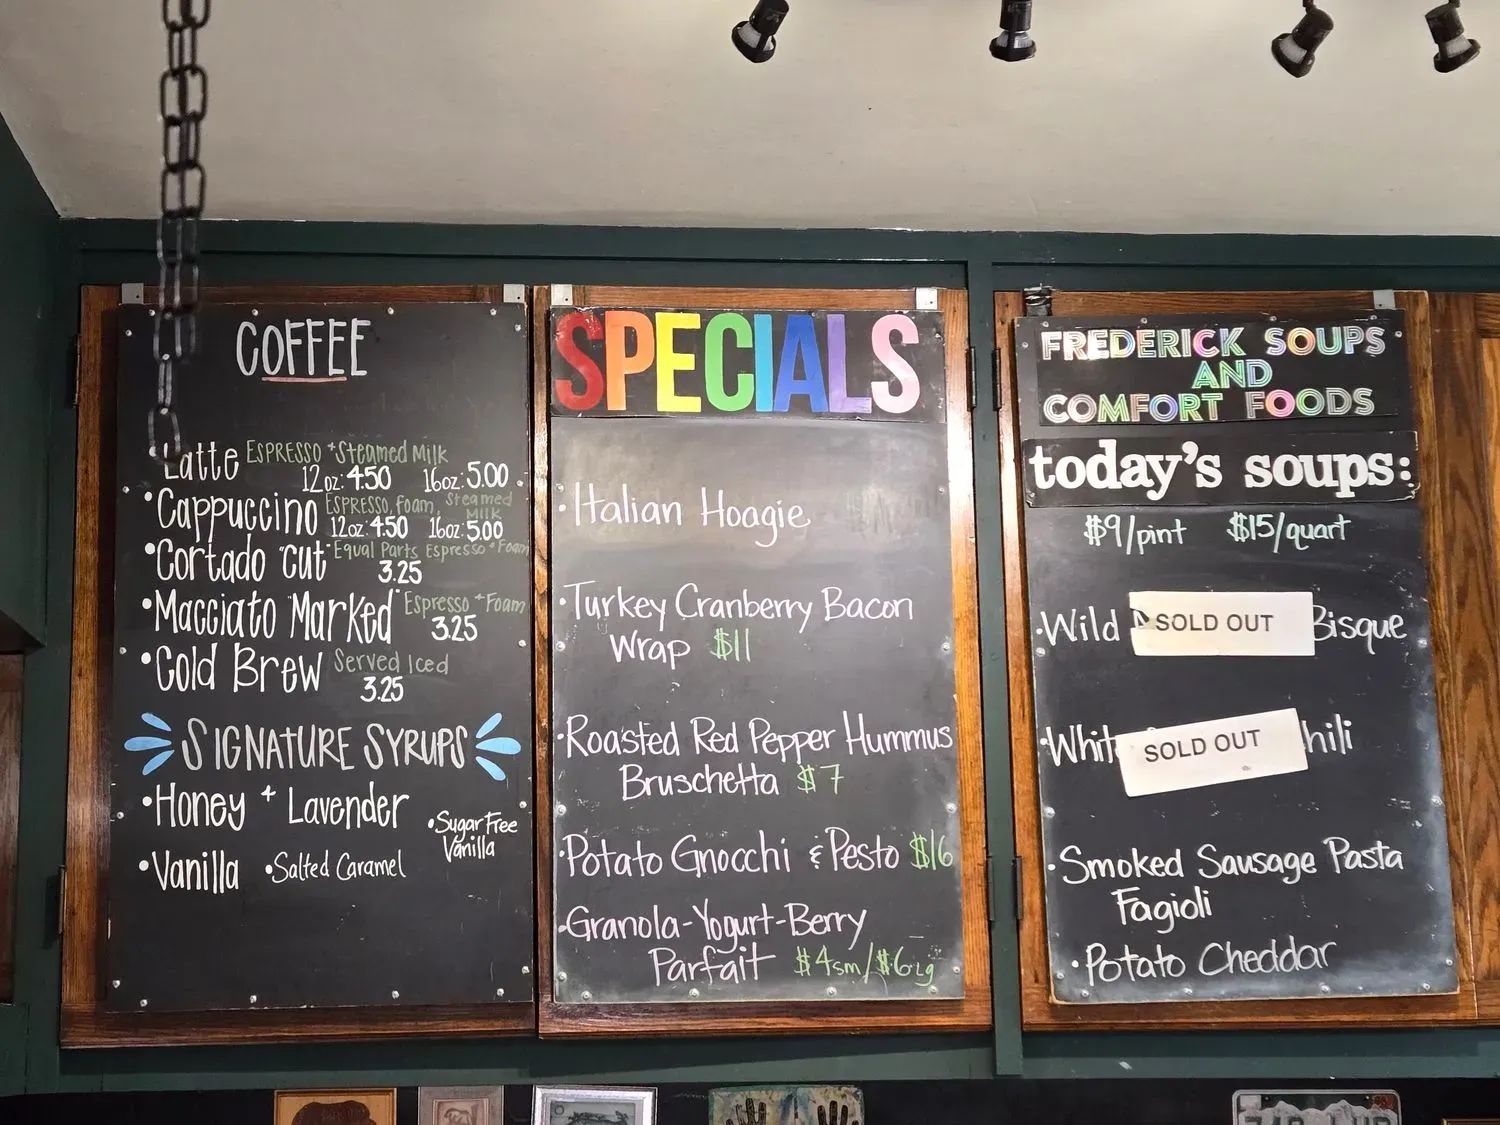 COFFEE
•Latte ESPRESSO + Steamed Milk
12oz: 4.50 16oz: 5.00
•Cappuccino ESPRESSO, Foam, Steamed Milk
12oz: 4.50 16oz: 5.00
•Cortado "cut" Equal Parts Espresso + Foam
3.25
•Macciato "Marked" Espresso + Foam
3.25
•Cold Brew Served Iced
3.25
SIGNATURE SYRUPS
•Honey + Lavender
•Sugar Free
Vanilla
•Vanilla •Salted Caramel
SPECIALS
•Italian Hoagie
•Turkey Cranberry Bacon
Wrap $11
•Roasted Red Pepper Hummus
Bruschetta $7
•Potato Gnocchi & Pesto $16
•Granola-Yogurt-Berry
Parfait $4sm/$6Lg
FREDERICK SOUPS
AND
COMFORT FOODS
today's soups:
$9/pint $15/quart
•Wild SOLD OUT Bisque
SOLD OUT
•Smoked Sausage Pasta
Fagioli
•Potato Cheddar